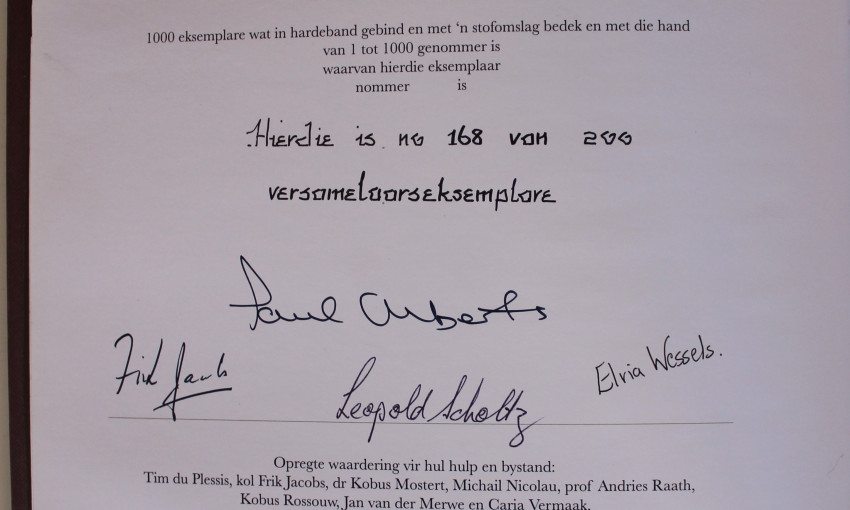 1000 eksemplare wat in hardeband gebind en met ‘n stofomslag bedek en met die hand
van 1 tot 1000 genommer is
waarvan hierdie eksemplaar
nommer is
Hierdie is no 168 van 200
versamelaarseksemplare
Paul Alberts
Frik Jacobs
Elria Wessels.
Leopold Scholtz
Opregte waardering vir hul hulp en bystand:
Tim du Plessis, kol Frik Jacobs, dr Kobus Mostert, Michail Nicolau, prof Andries Raath,
Kobus Rossouw, Jan van der Merwe en Carja Vermaak.